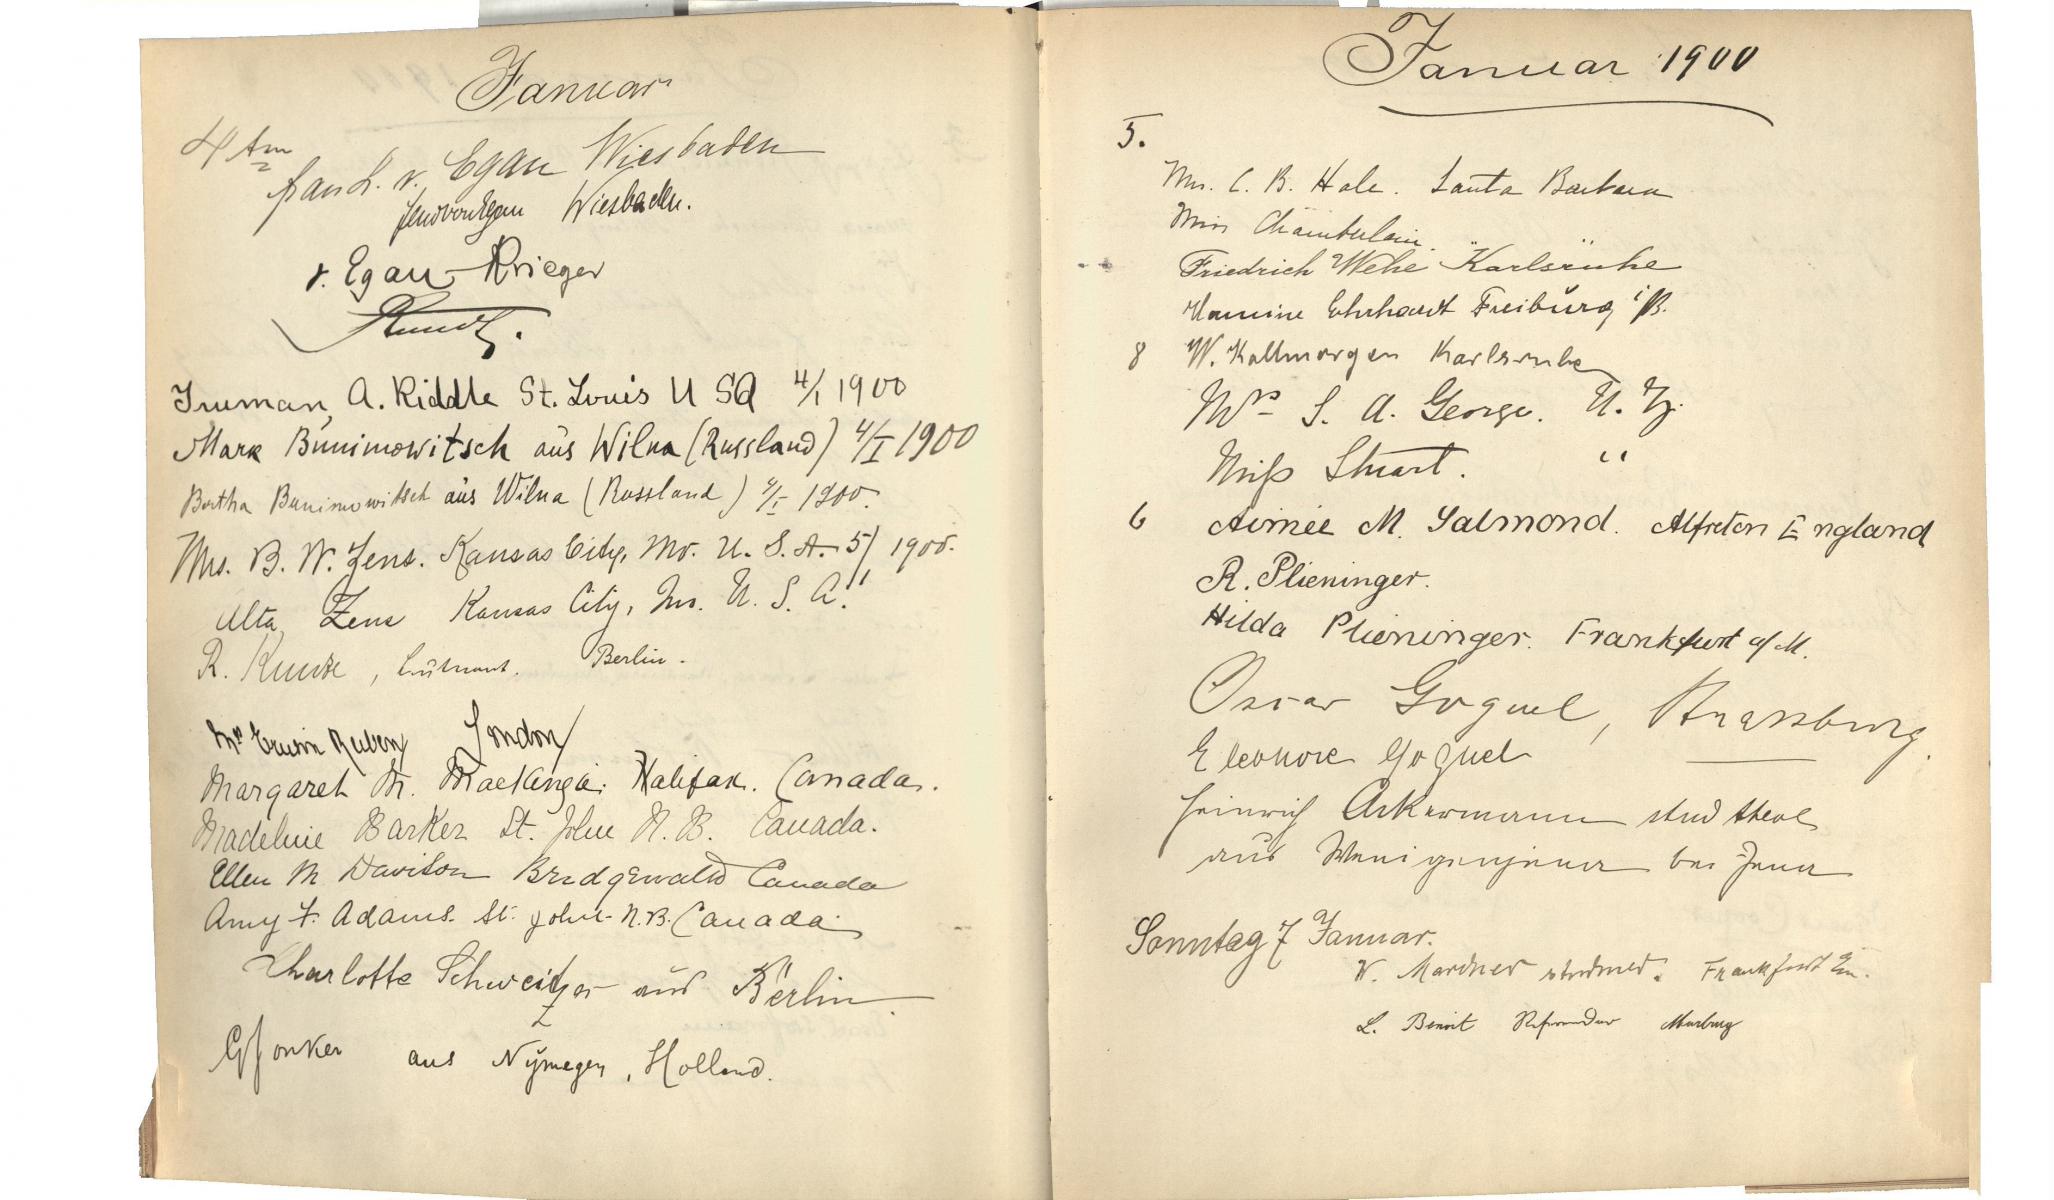 Januar
4 ten
Frau L. v. Egan Wiesbaden
Wiesbaden.
v. Egan-Krieger
Truman A. Riddle St. Louis U SA 4/I 1900
Mark Bunimowitsch aus Wilna (Russland) 4/I 1900
Bertha Bunimowitsch aus Wilna (Russland) 4/I 1900.
Mrs. B. W. Zens. Kansas City, Mo. U. S. A. 5/ 1900.
Alta Zens Kansas City, Mo. U. S. A. "
R. Kunze, Leutnant. Berlin.
Mrs Erwin Ruben London
Margaret M. MacKenzie. Halifax. Canada.
Madeline Barker St. John N. B. Canada.
Ellen M Davison Bridgewater Canada
Amy F. Adams. St. John. N.B. Canada.
Charlotte Schweitzer aus Berlin.
G Jonker aus Nijmegen, Holland.
Januar 1900
5.
Mrs. C. B. Hale. Santa Barbara
Miss Chamberlain. "
Friedrich Wehe Karlsruhe
Ehrhardt Freiburg i/B.
8 W. Kallmorgen Karlsruhe
Mrs S. A. George. N. Z.
Miss Stuart. "
6 Aimée M. Salmond. Alfreton England
R. Plieninger.
Hilda Plieninger. Frankfurt a/M.
Oscar Goguel, Strassburg.
Eleonore Goguel
Heinrich Ackermann stud theol
aus Wenigenjena bei Jena
Sonntag 7 Januar.
W. Mardner stud med. Frankfurt a/m.
L. Benoit Referendar Marburg